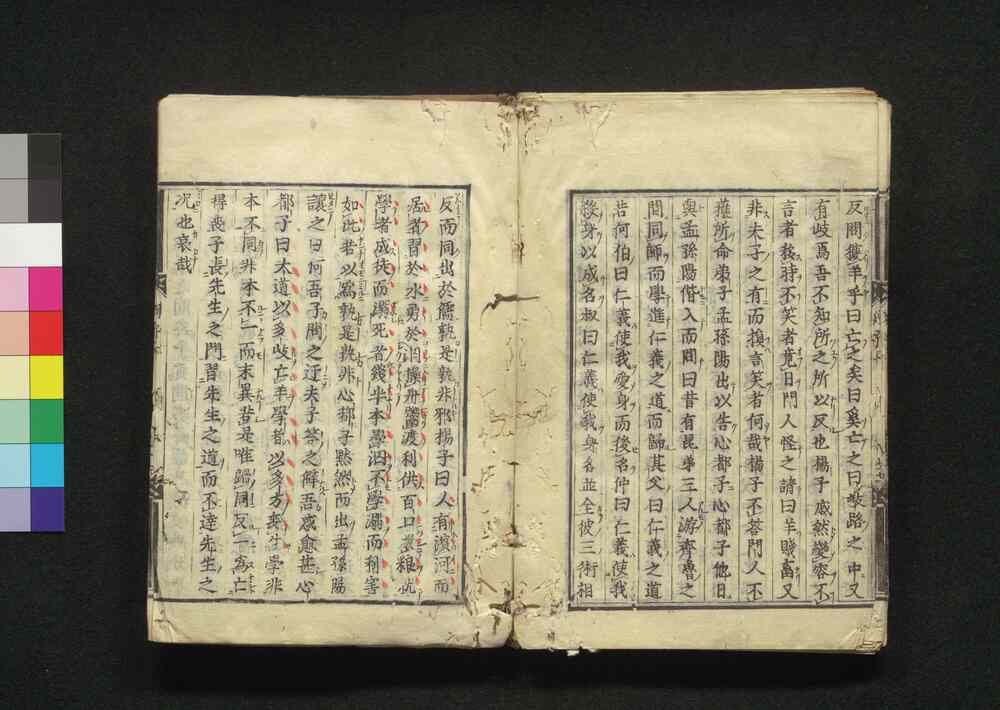 反問獲羊乎曰亡之矣曰奚亡之曰岐路之中又
有岐焉吾不知所之所以反也揚子慼然變容不
言者移時不笑者竟日門人怪之請曰羊賤畜又
非夫子之有而損言笑者何哉揚子不荅門人不
獲所命弟子孟孫陽出以告心都子心都子他日
與孟孫陽偕入而問曰昔有昆弟三人游齊魯之
間同師而學進仁義之道而歸其父曰仁義之道
若何伯曰仁義使我愛身而後名仲曰仁義使我
殺身以成名叔曰仁義使我身名並全彼三術相
反而同出於儒孰是孰非邪揚子曰人有濱河而
居者習於水勇於泅操舟鬻渡利供百口裹糧就
學者成徒而溺死者幾半本學泅不學溺而利害
如此若以為孰是孰非心都子黙然而出孟孫陽
讓之曰何吾子問之迂夫子答之僻吾惑愈甚心
都子曰大道以多歧亡羊學者以多方喪生學非
本不同非本不一而末異若是唯歸同反一為亡
得喪子長先生之門習先生之道而不達先生之
况也哀哉